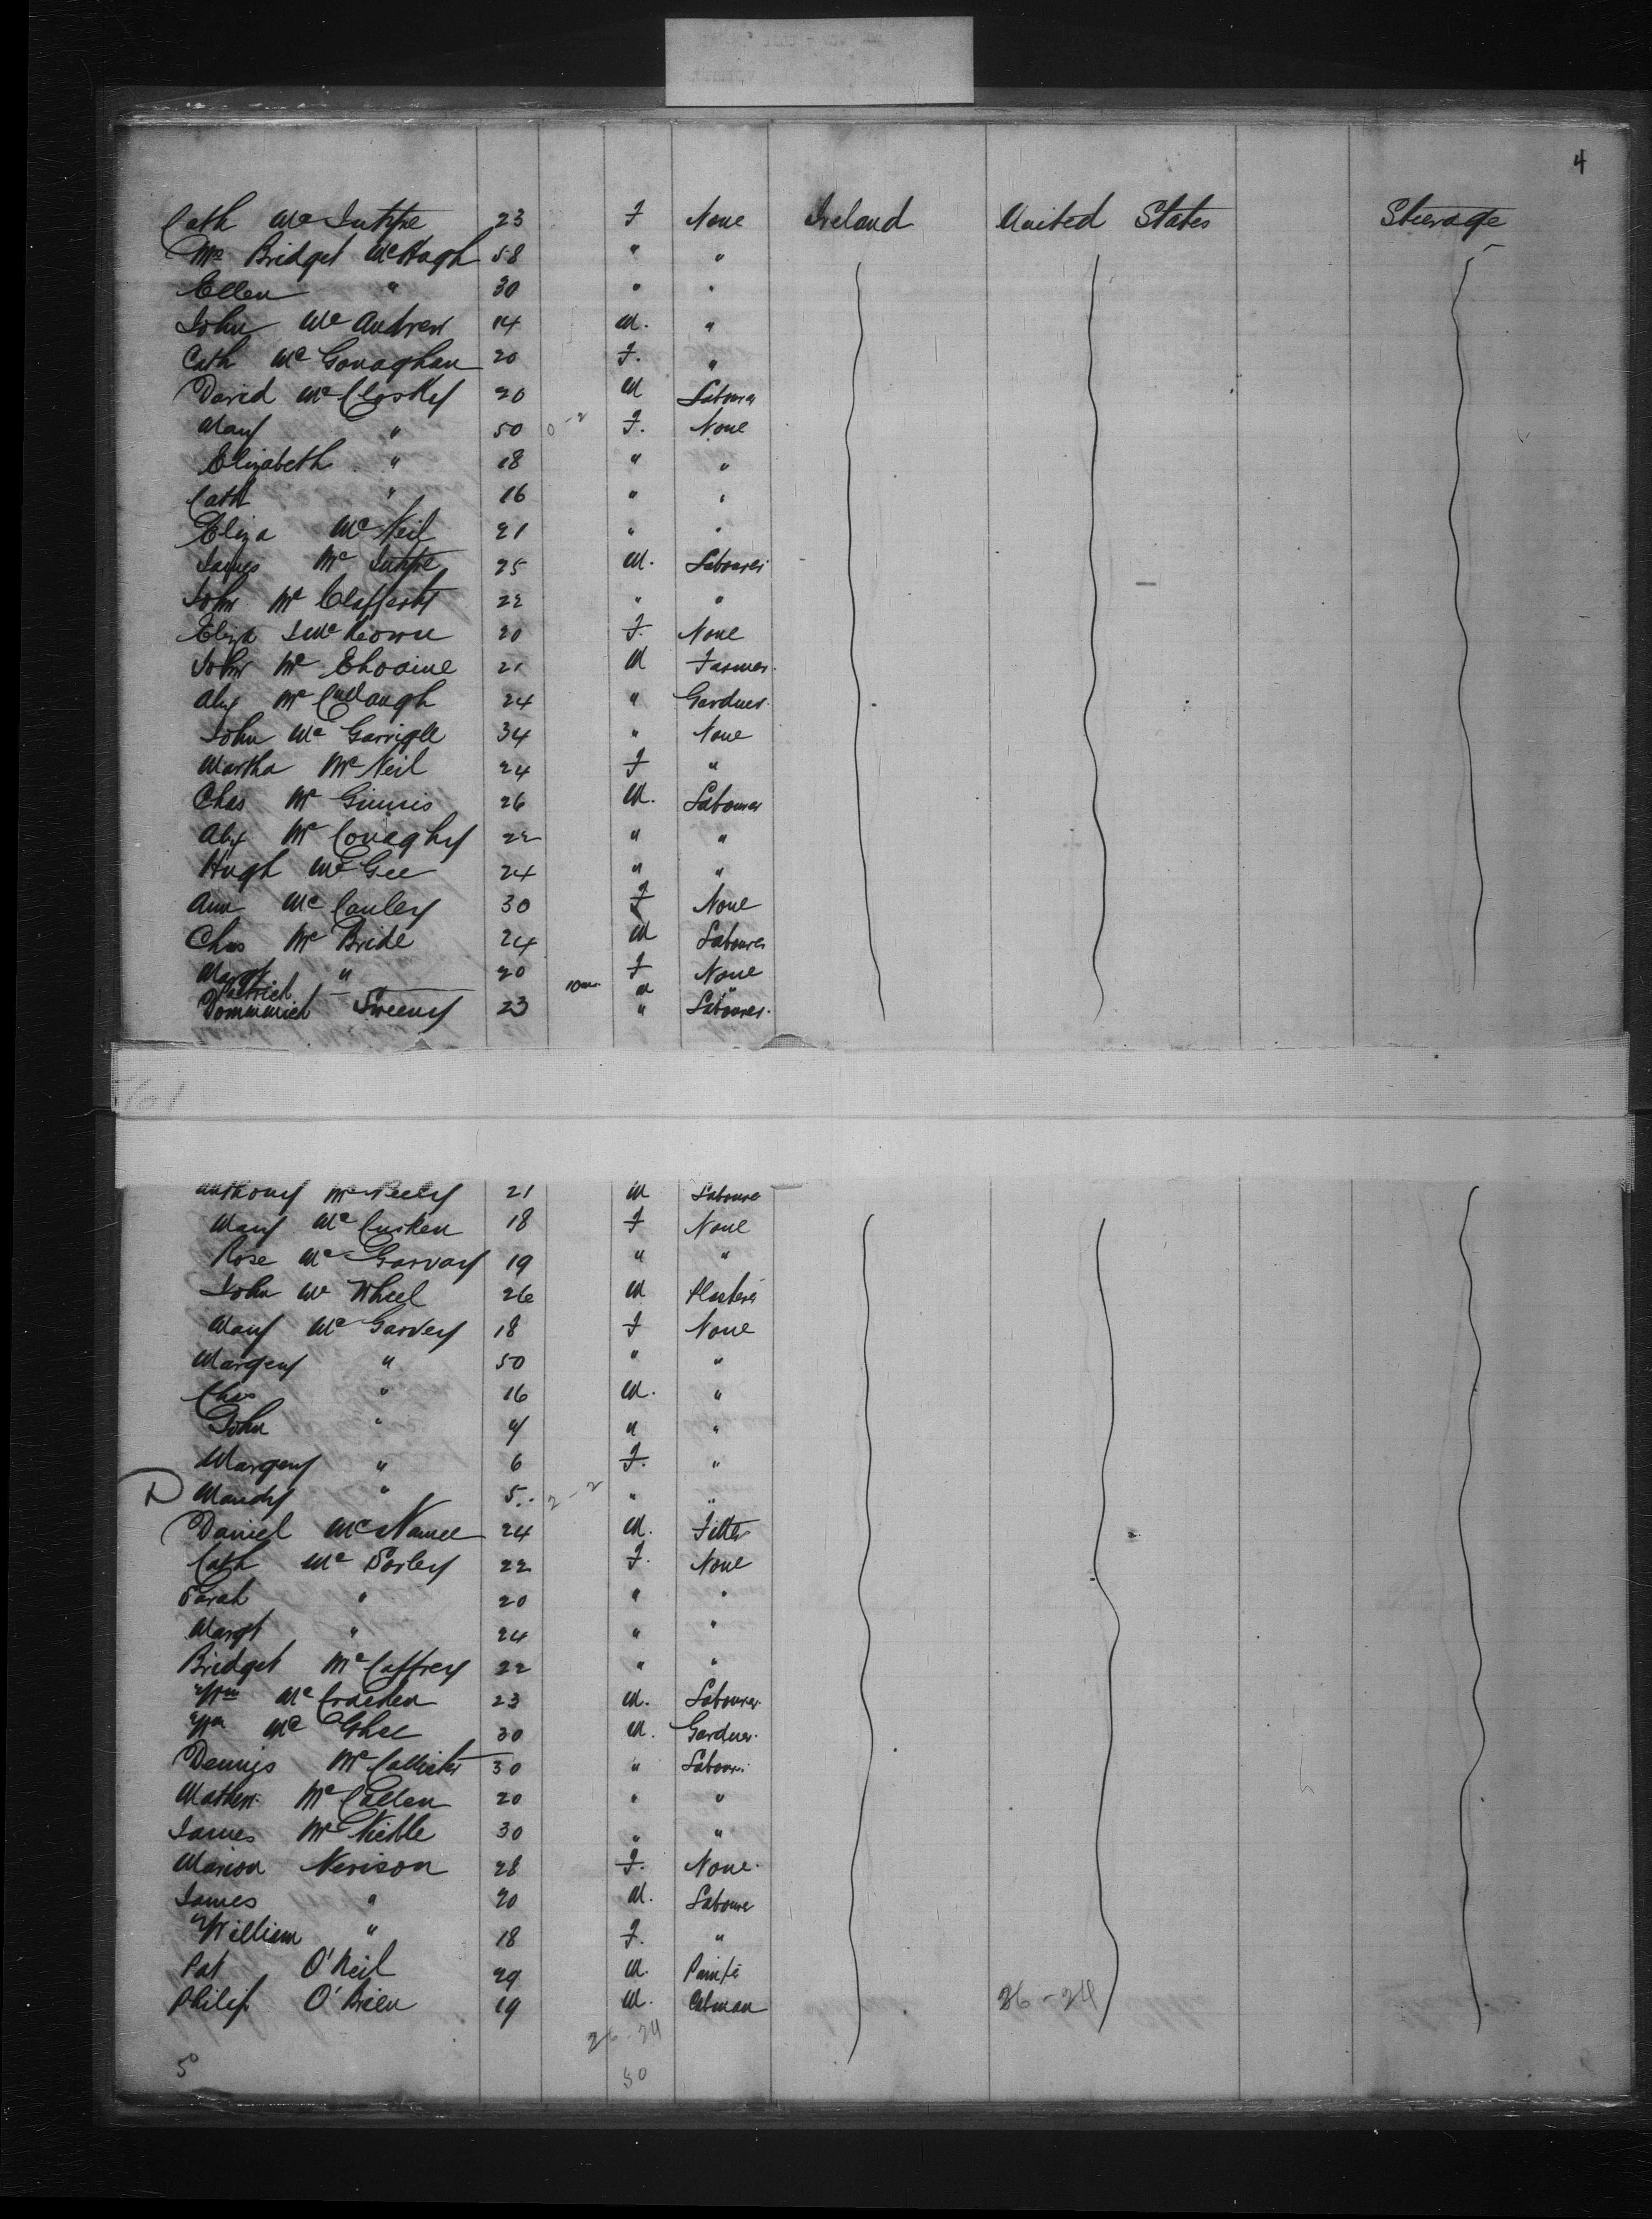 4
Cath McIntyre 23 F None Ireland United States Steerage
Mrs Bridget McHugh 58 " "
Ellen " 30 " "
John McAndrew 14 M. "
Cath McGonaghan 20 F. "
David McClosky 20 M Labourer
Mary " 50 0-2 F. None
Elizabeth " 18 " "
Cath " 16 " "
Eliza McNeil 21 " "
James McIntyre 25 M. Labourer
John McClafferty 22 " "
Eliza McKeown 20 F. None
John Mc 21 M Farmer.
Alex Mc 24 " Gardner.
John McGarrigle 34 " None
Martha McNeil 24 F "
Chas McGinnis 26 M. Labourer
Alex McConaghy 22 " "
Hugh McGee 24 " "
Ann McCauley 30 F None
Chas McBride 24 M Labourer
Margt " 20 F None
Patrick " 10m. M "
Domminick Sweeny 23 " Labourer.
Anthony McNeely 21 M Labourer
Mary McCusken 18 F None
Rose McGarvay 19 " "
John McWheel 26 M Plasterer
Mary McGarvey 18 F None
Margery " 50 " "
Chas " 16 M. "
John " 9 " "
Margery " 6 F. "
D Mandy " 5.. 2-2 " "
Daniel McNamee 24 M. Fitter
Cath McSorley 22 F. None
Sarah " 20 " "
Margt " 24 " "
Bridget McCaffrey 22 " "
Wm McCracken 23 M. Labourer
Wm McGhee 30 M. Gardner.
Dennis McCallister 30 " Labourer
Mathew McCallen 20 " "
James McNickle 30 " "
Marion Nerison 28 F. None.
James " 20 M. Labourer
William " 18 F. "
Pat O'Neil 29 M. Painter
Philip O'Brien 19 M. Cabman 26-24
26-24
50 50